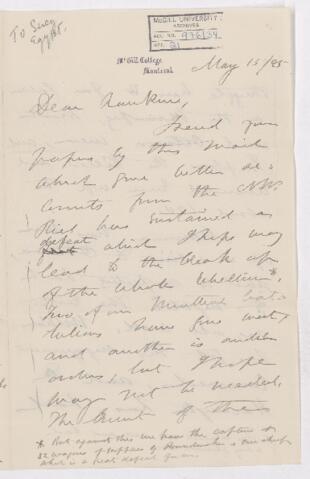 To Suez
Egypt.
McGILL UNIVERSITY
ARCHIVES
ACC. NO. 976/34
REF. 21
McGill College,
Montreal.
May 15/85
Dear Rankine,
I send you
papers by this mail
which give better ac-
counts from the N.W.
Riel has sustained a
defeat which I hope may
lead to the break up
of the whole rebellion*.
Two of our Montreal bat-
talions have gone west
and another is under
orders, but I hope
may not be needed.
The Count of these
* But against this we have the capture of
32 wagons of supplies of
which is a great defeat for us.